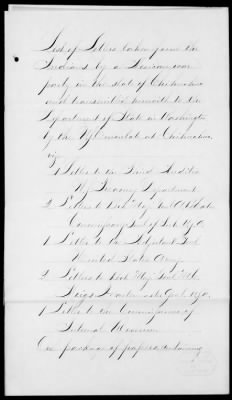 List of Letters taken from the
Indians by a Mexican war
party in the State of Chihuahua
and transmitted herewith to the
Department of State in Washington
by the U.S. Consulate at Chihuahua,
viz:
1 Letter to the Third Auditor
U.S. Treasury Department
2 Letters to
Commissary Genl of Sub. U.S.A.
1 Letter to the Adjutant Genl
United States Army
2 Letters to Genl
Meigs Quarter master Genl U.S.A.
1 Letter to the Commissioner of
Internal Revenue
One package of papers containing